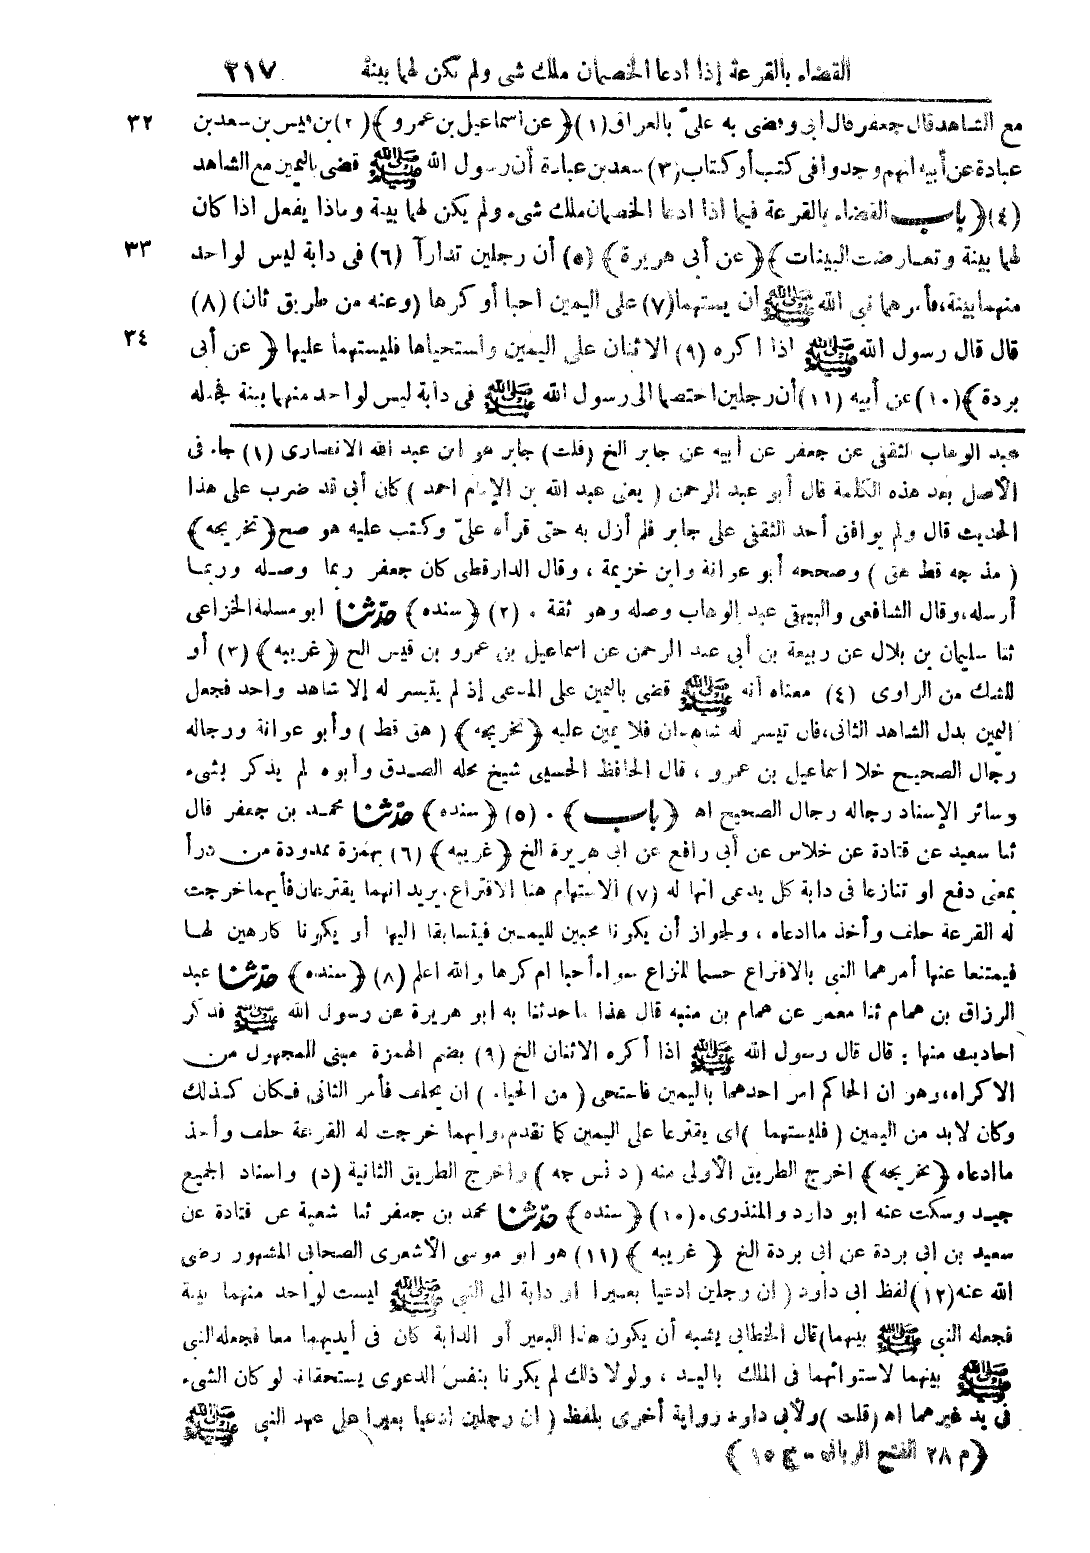 القضاء بالقرعة إذا ادعا الخصمان ملك شى ولم تكن لهما بينة ٢١٧
مع الشاهد قال جعفر قال أبى وقضى به علىّ بالعراق (١) ﴿ عن اسماعيل بن عمرو ﴾ (٢) بن قيس بن سعد بن ٣٢
عبادة عن أبيه انهم وجدوا فى كتب أو كتاب (٣) سعد بن عبادة أن رسول الله ﷺ قضى باليمين مع الشاهد
(٤) ﴿ باب القضاء بالقرعة فيما اذا ادعا الخصمان ملك شىء ولم يكن لهما بينة وماذا يفعل اذا كان
لهما بينة وتعارضت البينات ﴾ ﴿ عن أبى هريرة ﴾ (٥) أن رجلين تدارآ (٦) فى دابة ليس لواحد ٣٣
منهما بينة، فأمرهما نبى الله ﷺ أن يستهما (٧) على اليمين احبا أو كرها (وعنه من طريق ثان) (٨)
قال قال رسول الله ﷺ اذا اكره (٩) الاثنان على اليمين واستحباها فليستهما عليها ﴿ عن أبى ٣٤
بردة ﴾ (١٠) عن أبيه (١١) أن رجلين اختصما الى رسول الله ﷺ فى دابة ليس لواحد منهما بينة فجعله
عبد الوهاب الثقفى عن جعفر عن أبيه عن جابر الخ (قلت) جابر هو ابن عبد الله الانصارى (١) جاء فى
الأصل بعد هذه الكلمة قال أبو عبد الرحمن ( يعنى عبد الله بن الإمام احمد ) كان أبى قد ضرب على هذا
الحديث قال ولم يوافق أحد الثقفى على جابر فلم أزل به حتى قرأه علىّ وكتب عليه هو صح ﴿ تخريجه ﴾
( مذ جه قط هق ) وصححه أبو عوانة وابن خزيمة ، وقال الدارقطى كان جعفر ربما وصله وربما
أرسله، وقال الشافعى والبيهقى عبد الوهاب وصله وهو ثقة . (٢) ﴿ سنده ﴾ حدّثنا ابو مسلمة الخزاعى
ثنا سليمان بن بلال عن ربيعة بن أبى عبد الرحمن عن اسماعيل بن عمرو بن قيس الخ ﴿ غريبه ﴾ (٣) أو
للشك من الراوى (٤) معناه أنه ﷺ قضى باليمين على المدعى إذ لم يتيسر له إلا شاهد واحد فجعل
اليمين بدل الشاهد الثانى، فان تيسر له شاهدان فلا يمين عليه ﴿ تخريجه ﴾ ( هق قط ) وأبو عوانة ورجاله
رجال الصحيح خلا اسماعيل بن عمرو ، قال الحافظ الحسينى شيخ محله الصدق وأبوه لم يذكر بشىء
وسائر الإسناد رجاله رجال الصحيح اه ﴿ باب ﴾ . (٥) ﴿ سنده ﴾ حدّثنا محمد بن جعفر قال
ثنا سعيد عن قتادة عن خلاس عن أبى رافع عن ابى هريرة الخ ﴿ غريبه ﴾ (٦) بهمزة ممدودة من درأ
بمعنى دفع او تنازعا فى دابة كل يدعى انها له (٧) الاستهام هنا الاقتراع، يريد انهما يقترعان فأيهما خرجت
له القرعة حلف وأخذ ما ادعاه ، ولجواز أن يكونا محبين لليمين فيتسابقا اليها أو يكونا كارهين لها
فيمتنعا عنها أمرهما النبى بالاقتراع حسما للنزاع سواء أحبا ام كرها والله اعلم (٨) ﴿ سنده ﴾ حدّثنا عبد
الرزاق بن همام ثنا معمر عن همام بن منبه قال هذا ماحدثنا به ابو هريرة عن رسول الله ﷺ فذكر
احاديث منها : قال قال رسول الله ﷺ اذا أكره الاثنان الخ (٩) بضم الهمزة مبنى للمجهول من
الاكراه، وهو ان الحاكم امر احدهما باليمين فاستحى ( من الحياء ) ان يحلف فأمر الثانى فكان كذلك
وكان لابد من اليمين ( فليستهما ) اى يقترعا على اليمين كما تقدم، وايهما خرجت له القرعة حلف وأخذ
ما ادعاه ﴿ تخريجه ﴾ اخرج الطريق الأولى منه ( د نس جه ) واخرج الطريق الثانية (د) واسناد الجميع
جيد وسكت عنه ابو داود والمنذرى. (١٠) ﴿ سنده ﴾ حدّثنا محمد بن جعفر ثنا شعبة عن قتادة عن
سعيد بن ابى بردة عن ابى بردة الخ ﴿ غريبه ﴾ (١١) هو ابو موسى الأشعرى الصحابى المشهور رضى
الله عنه (١٢) لفظ ابى داود ( ان رجلين ادعيا بعيرا او دابة الى النبى ﷺ ليست لواحد منهما بينة
فجعله النبى ﷺ بينهما) قال الخطابى يشبه أن يكون هذا البعير أو الدابة كان فى أيديهما معا فجعله النبى
ﷺ بينهما لاستوائهما فى الملك باليد ، ولولا ذلك لم يكونا بنفس الدعوى يستحقانه لو كان الشىء
فى يد غيرهما اه (قلت ) ولأبى داود رواية أخرى بلفظ ( ان رجلين ادعيا بعيرا على عهد النبى ﷺ
﴿ م ٢٨ الفتح الربانى - ج ١٥ ﴾